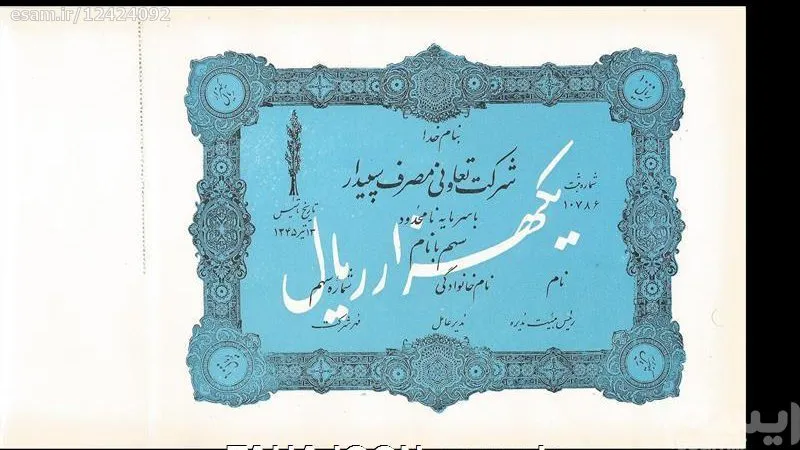 esam.ir/12424092
بنام خدا
شرکت تعاونی مصرف سپیدار
شماره ثبت
۱۰۷۸۶
با سرمایه نامحدود
تاریخ تأسیس
۱۳ تیر ۱۳۴۵
سهم با نام
یکهزار ریال
نام
نام خانوادگی
شماره سهم
رئیس هیئت مدیره
مدیر عامل
مهر شرکت